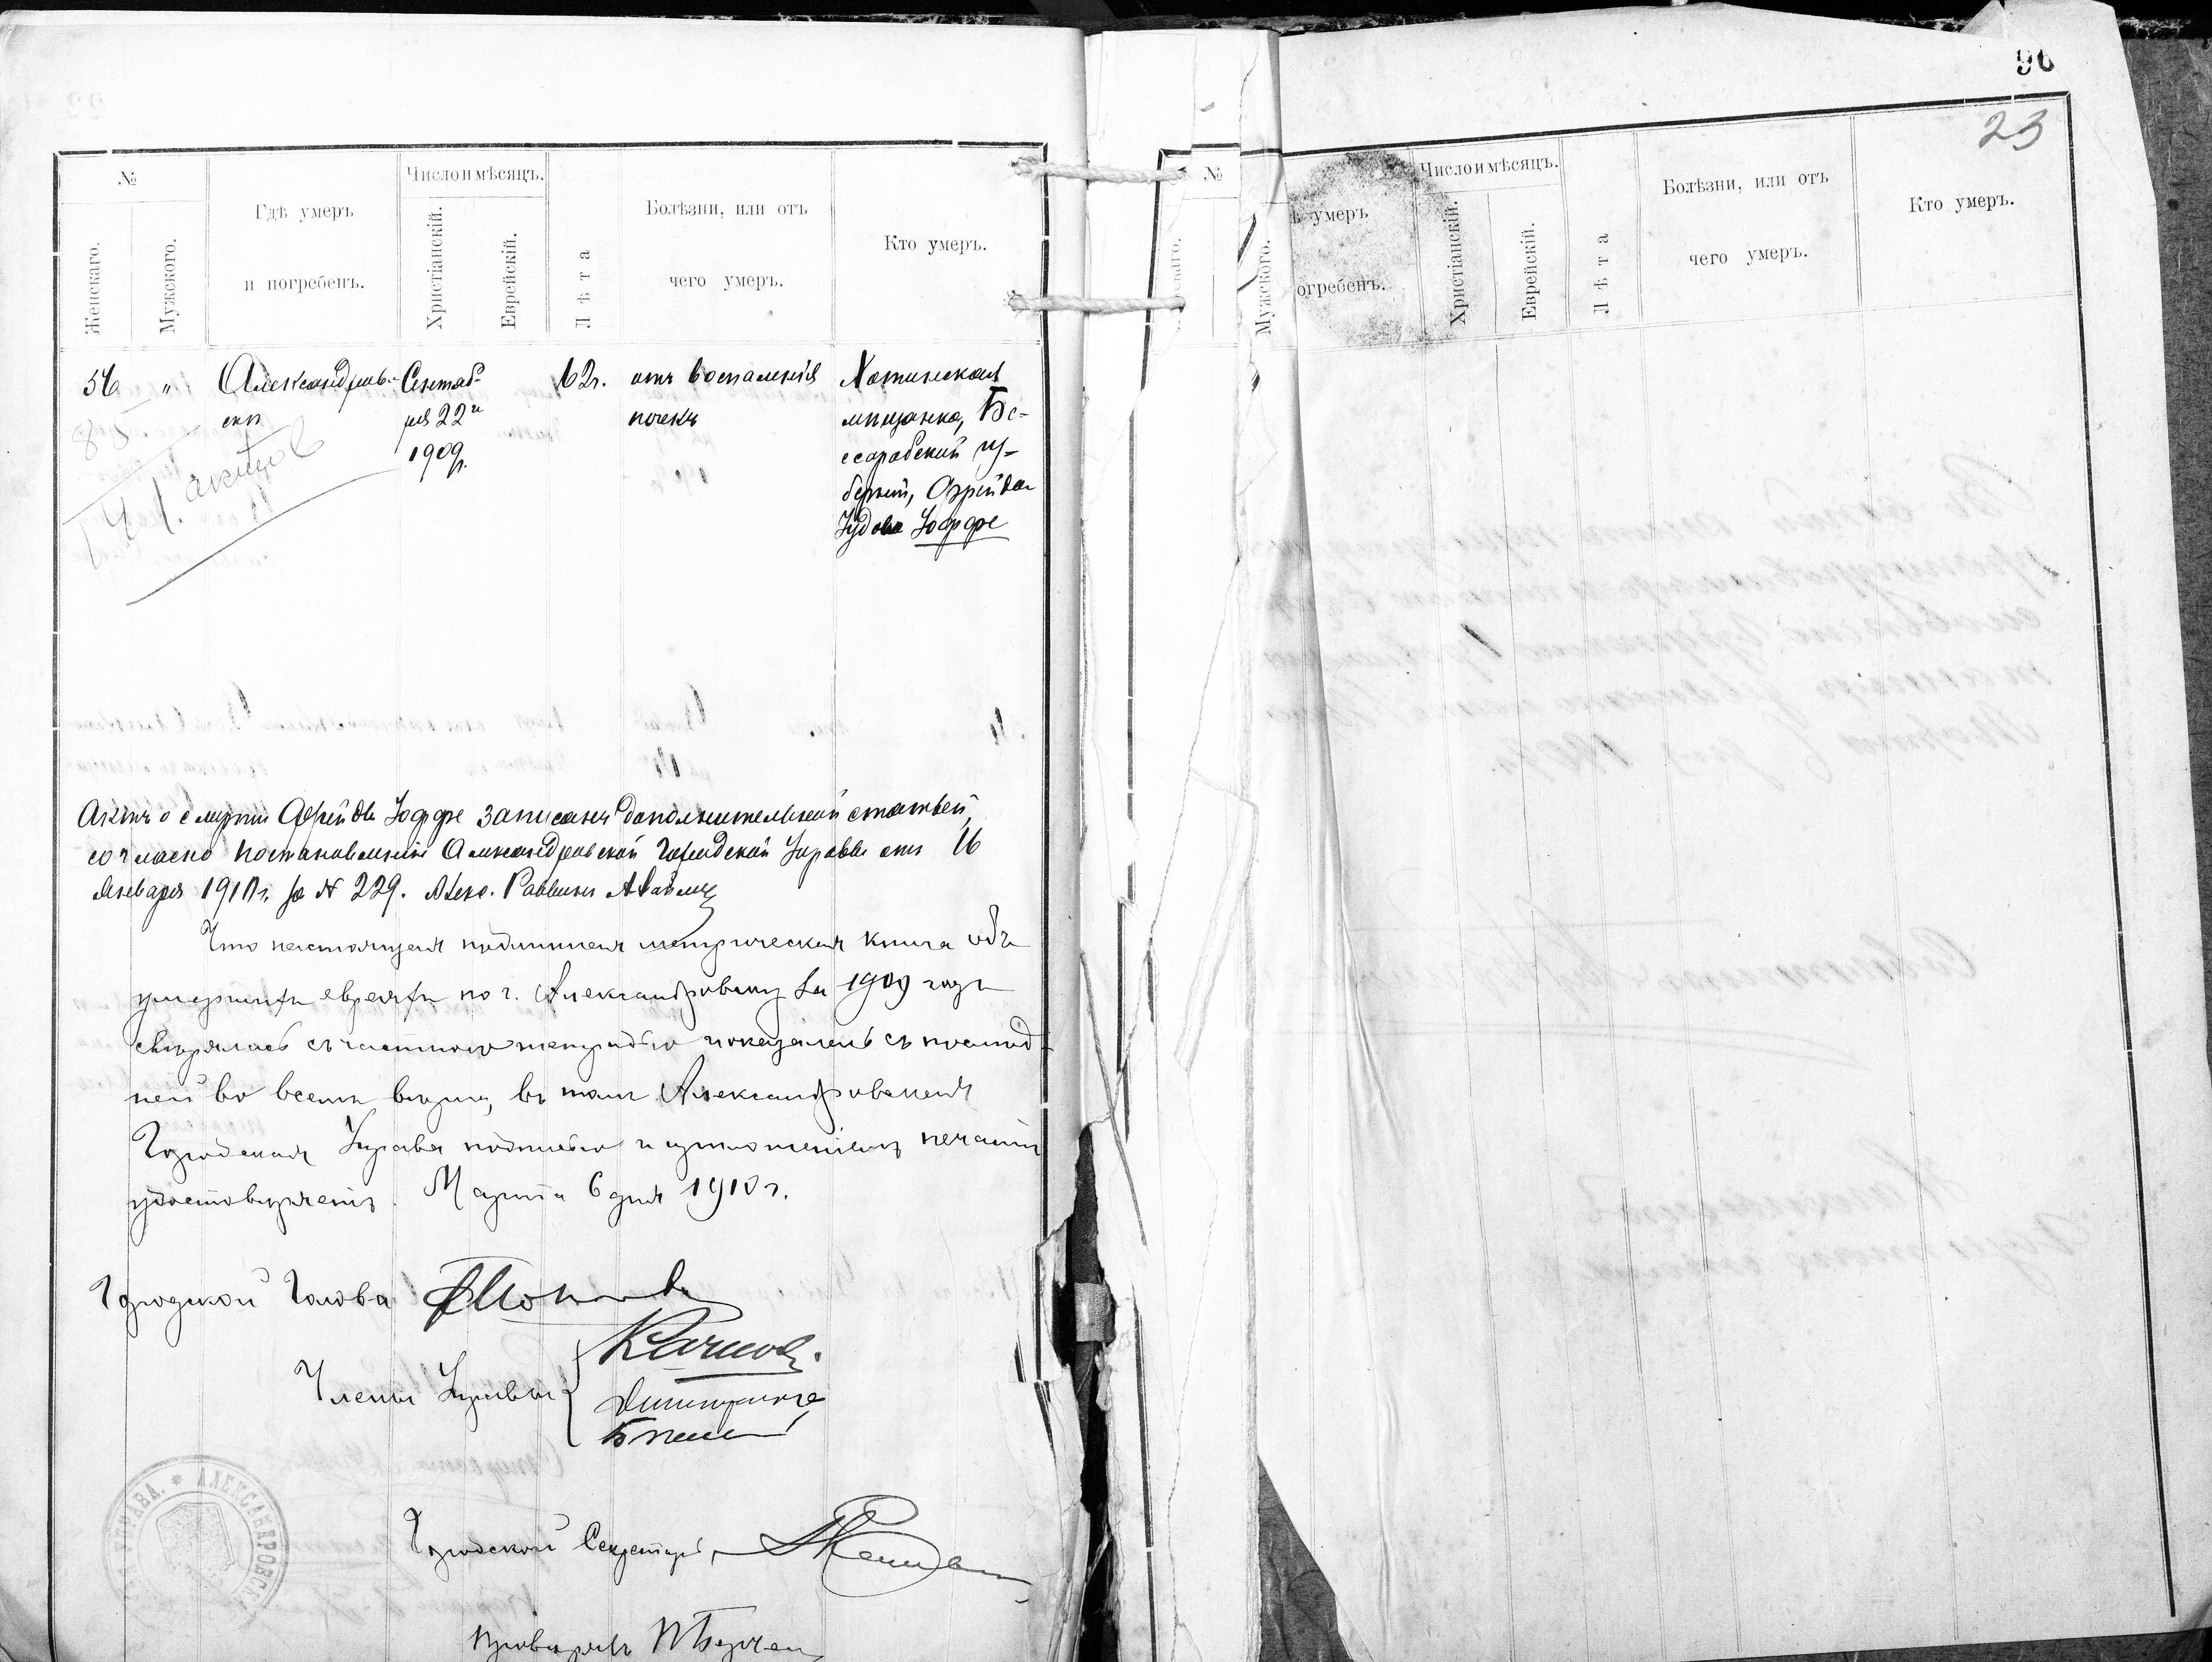 №
Женскаго.
Мужского.
Гдѣ умеръ
и погребенъ.
Число и мѣсяцъ.
Христіанскій.
Еврейскій.
Лѣта
Болѣзни, или отъ
чего умеръ.
Кто умеръ.
56 " Александров-
скѣ
Сентяб-
ря 22го
1909г.
62г.
отъ воспаленія
почекъ
Хотинская
мѣщанка, Бе-
ссарабской гу-
берніи, Фрейда
Іудова Іоффе
141. актовъ
Актъ о смерти Фрейды Іоффе записанъ дополнительной статьей,
согласно постановленія Александровской Городской Управы отъ 16
Января 1910г. за № 229. Раввинъ
Что настоящая подлинная метрическая книга объ
умершихъ евреяхъ по г. Александровску за 1909 годъ
свѣрялась съ частною тетрадью и оказалась съ послѣд-
ней во всемъ вѣрна, въ томъ Александровская
Городская Управа подписью и приложеніемъ печати
удостовѣряетъ. Марта 6 дня 1910 г.
Городской Голова
Члены Управы
Городской Секретарь
АЛЕКСАНДРОВСК
УПРАВА.
96
23
№
Мужского.
ѣ умеръ
огребенъ.
Число и мѣсяцъ.
Христіанскій.
Еврейскій.
Лѣта
Болѣзни, или отъ
чего умеръ.
Кто умеръ.